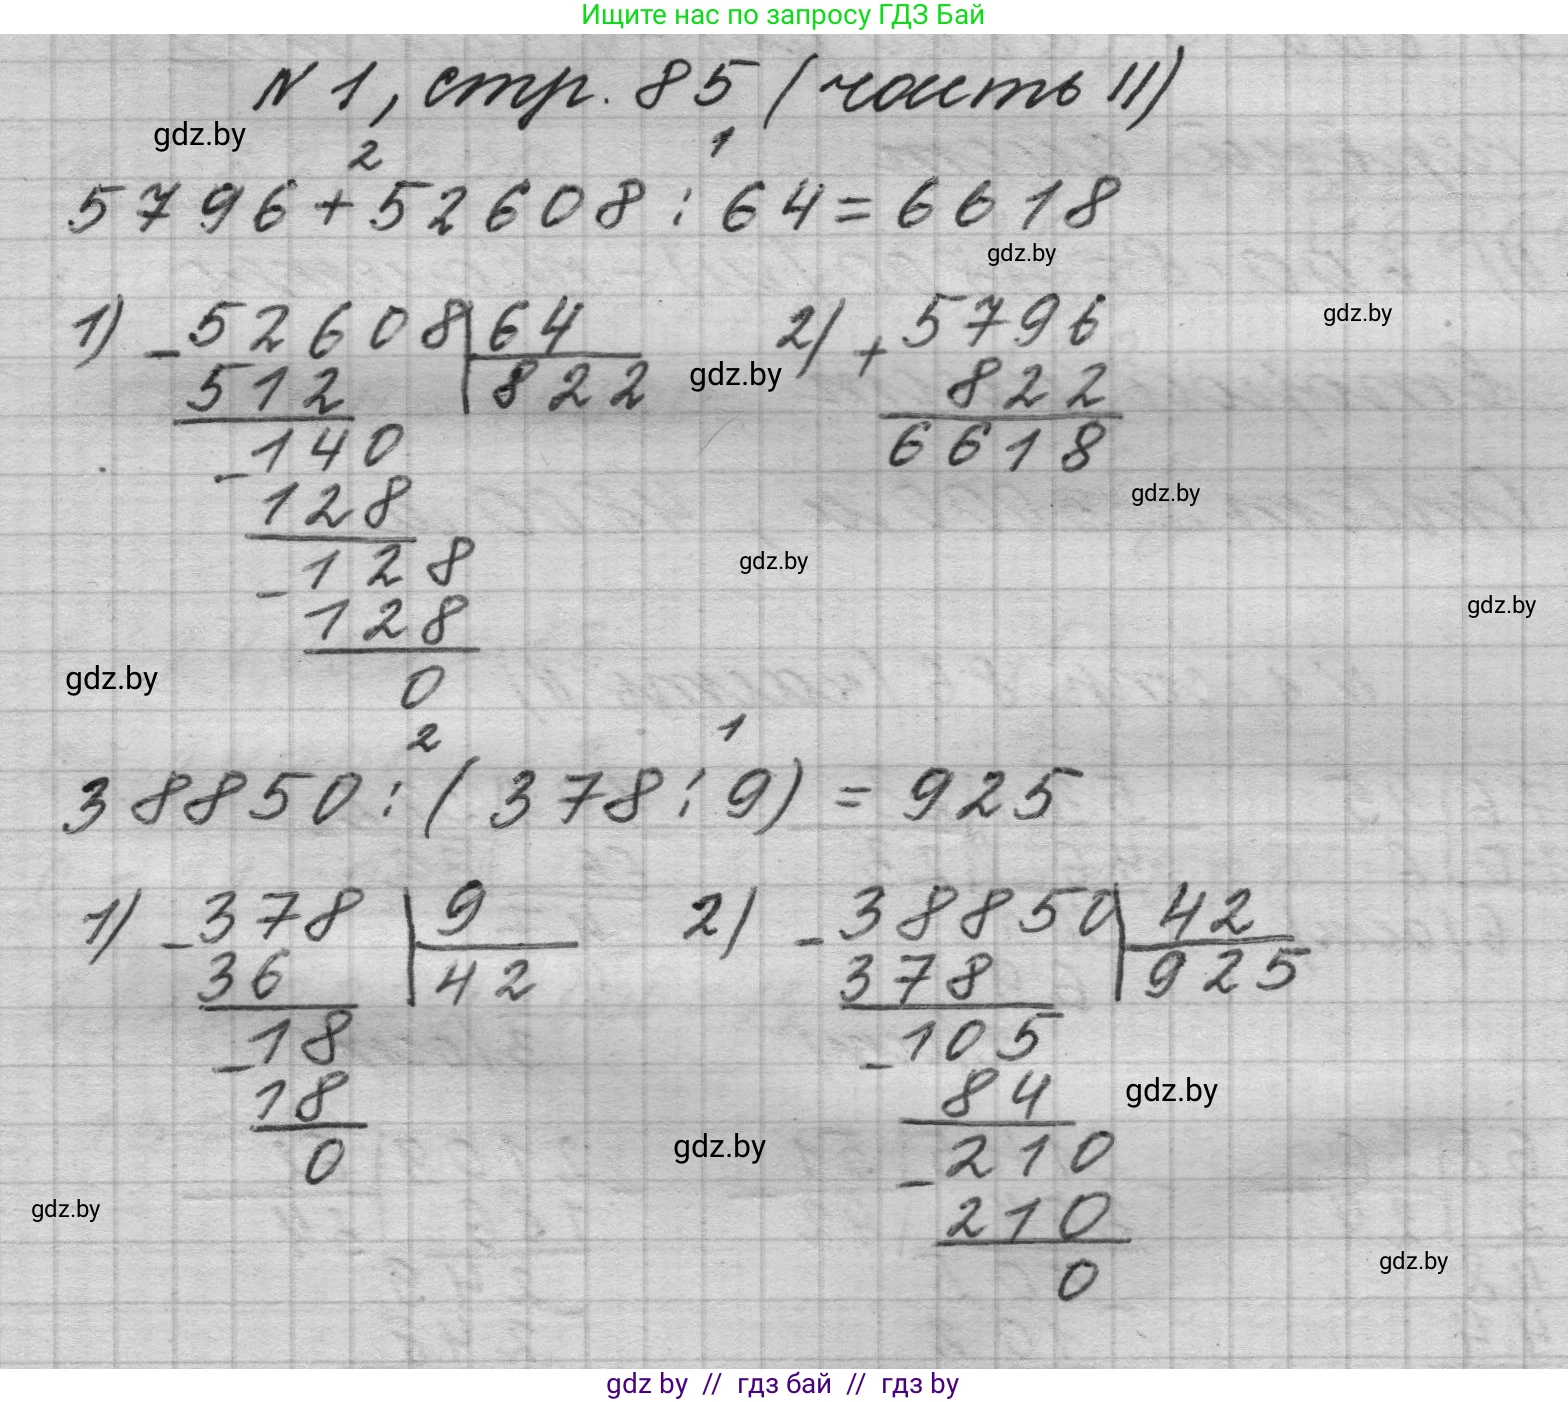 Ищите нас по запросу ГДЗ Бай
№ 1, стр. 85 (часть II)
gdz.by
2 1
5796+52608:64=6618
gdz.by
1) -52608 64 2) +5796
gdz.by
512 822 gdz.by 822
-140 6618
128 gdz.by
-128 gdz.by
128 gdz.by
0
gdz.by
2 1
38850:(378:9)=925
1) -378 9 2) -38850 42
36 42 378 925
-18 -105
18 84 gdz.by
0 gdz.by -210
gdz.by 210
0 gdz.by
gdz by // гдз бай // гдз by